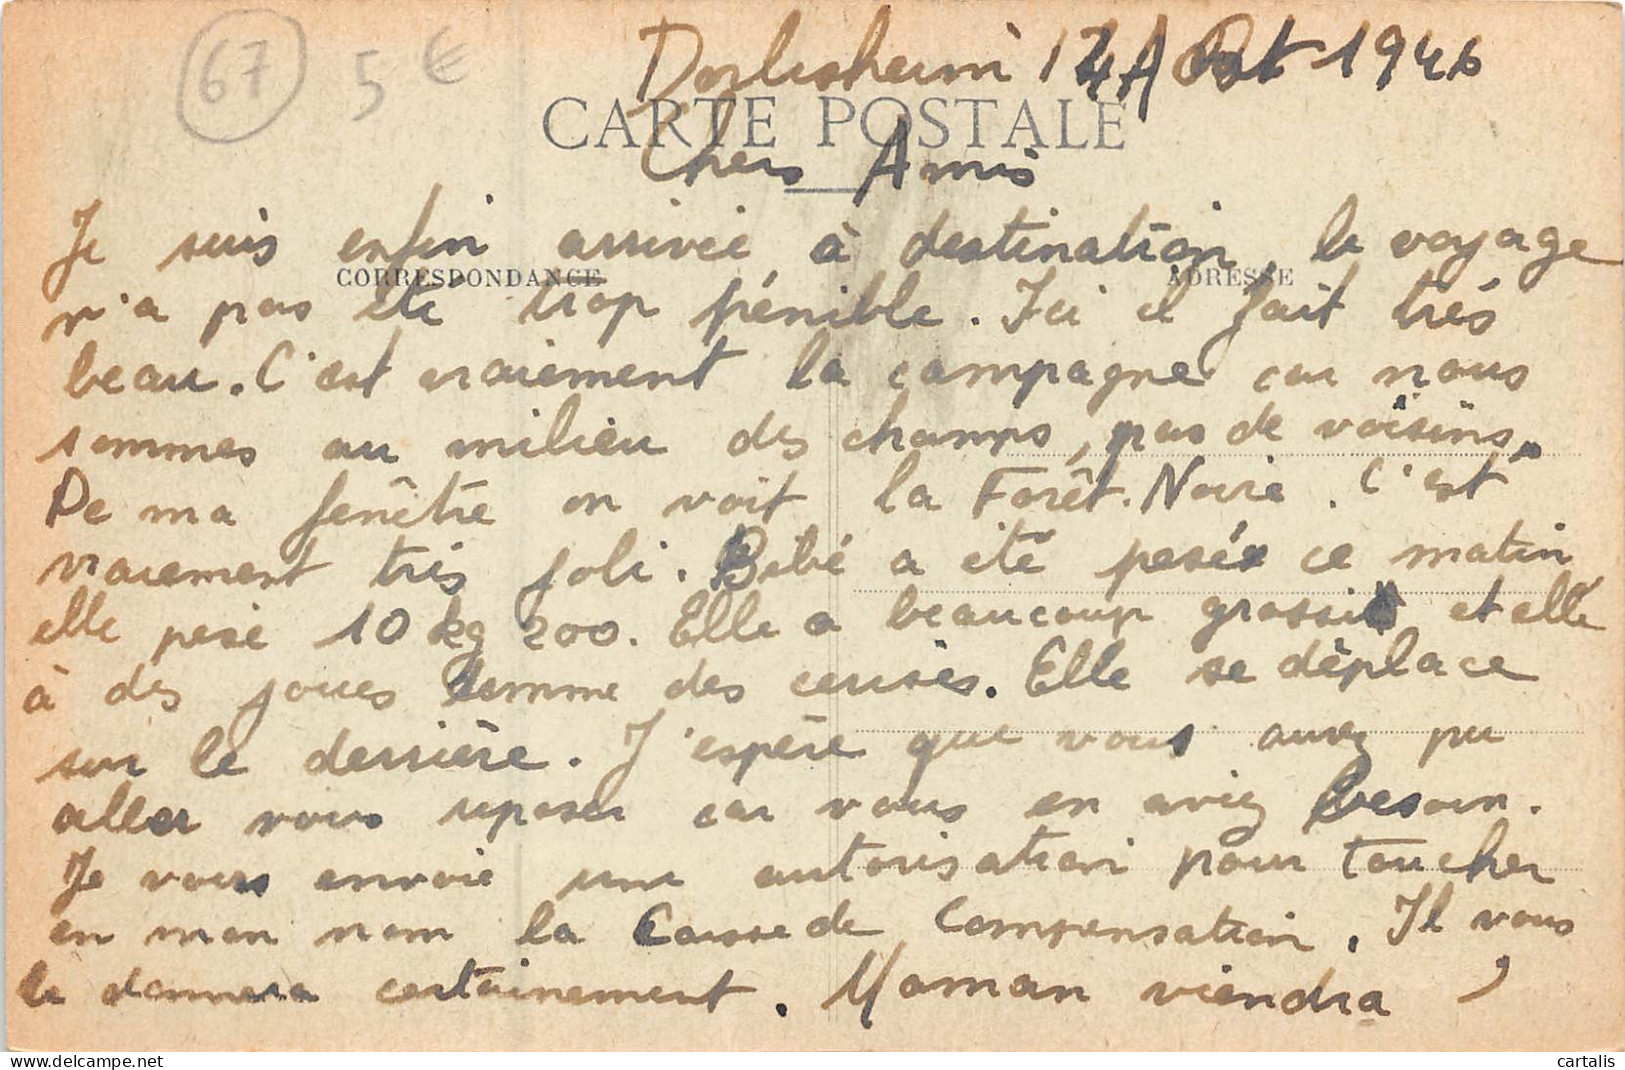 67 5 €
Dorlisheim 14 Aout 1946
CARTE POSTALE
Chers Amis
Je suis enfin arrivée à destination, le voyage
CORRESPONDANCE ADRESSE
n'a pas été trop pénible. Ici il fait très
beau. C'est vraiement la campagne car nous
sommes au milieu des champs, pas de voisins.
De ma fenêtre on voit la Forêt-Noire. C'est
vraiement très joli. Bébé a été pesée ce matin
elle pese 10 kg 200. Elle a beaucoup grossi et elle
à des joues comme des cerises. Elle se déplace
sur le derrière. J'espère que vous avez pu
aller vous reposer car vous en aviez besoin.
Je vous envoie une autorisation pour toucher
en mon nom la Caisse de Compensation. Il vous
le donnera certainement. Maman viendra
cartalis